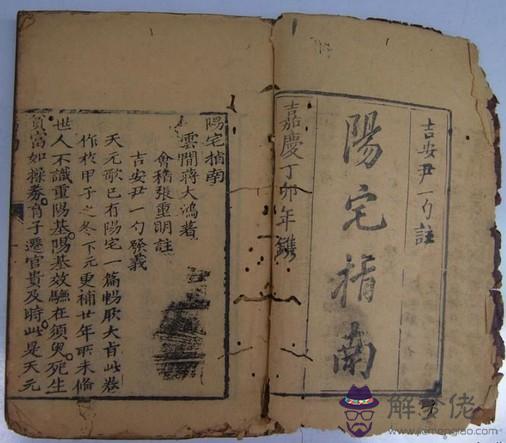 吉安尹一勺註
陽宅指南
嘉慶丁卯年鐫
陽宅指南
雲間蔣大鴻著
會稽張重明註
吉安尹一勺發義
天元歌已有陽宅一篇暢厥大旨此卷
作於甲子之冬下元更補廿年所未備
世人不識重陽基。陽基效驗在須臾。死生
貧富如操券。育子遷官貴及時。此是天元
解夢佬